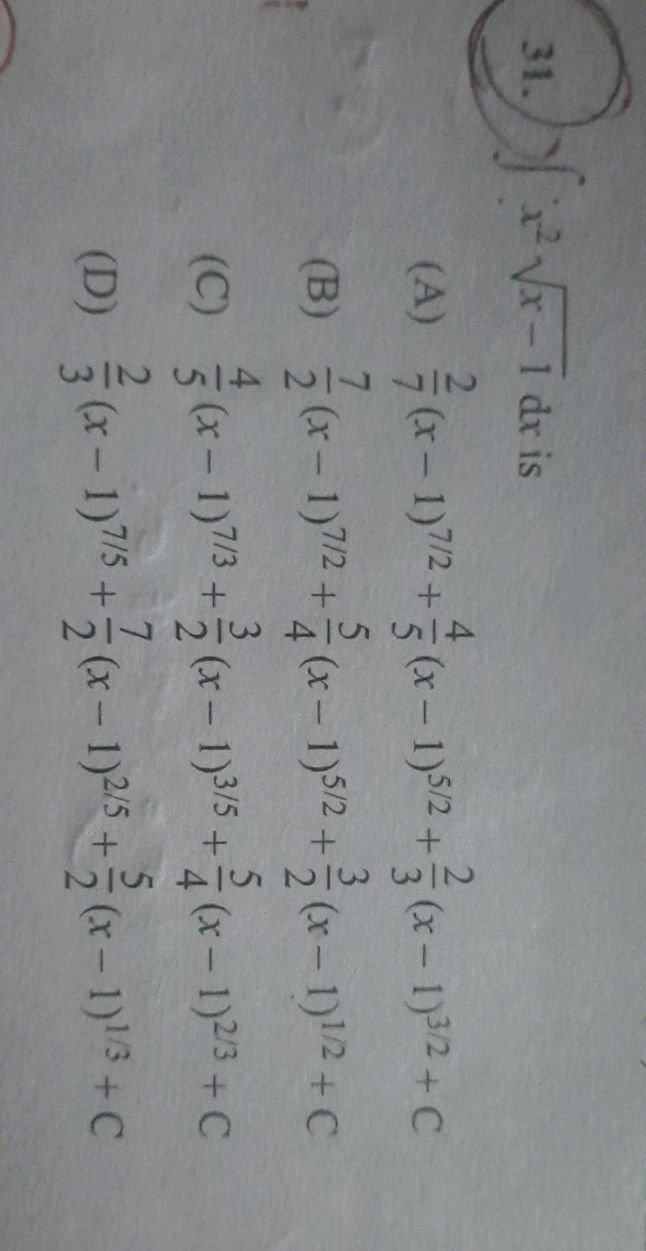 31. ∫ x² √(x − 1) dx is
(A) 2/7 (x − 1)^{7/2} + 4/5 (x − 1)^{5/2} + 2/3 (x − 1)^{3/2} + C
(B) 7/2 (x − 1)^{7/2} + 5/4 (x − 1)^{5/2} + 3/2 (x − 1)^{1/2} + C
(C) 4/5 (x − 1)^{7/3} + 3/2 (x − 1)^{3/5} + 5/4 (x − 1)^{2/3} + C
(D) 2/3 (x − 1)^{7/5} + 7/2 (x − 1)^{2/5} + 5/2 (x − 1)^{1/3} + C